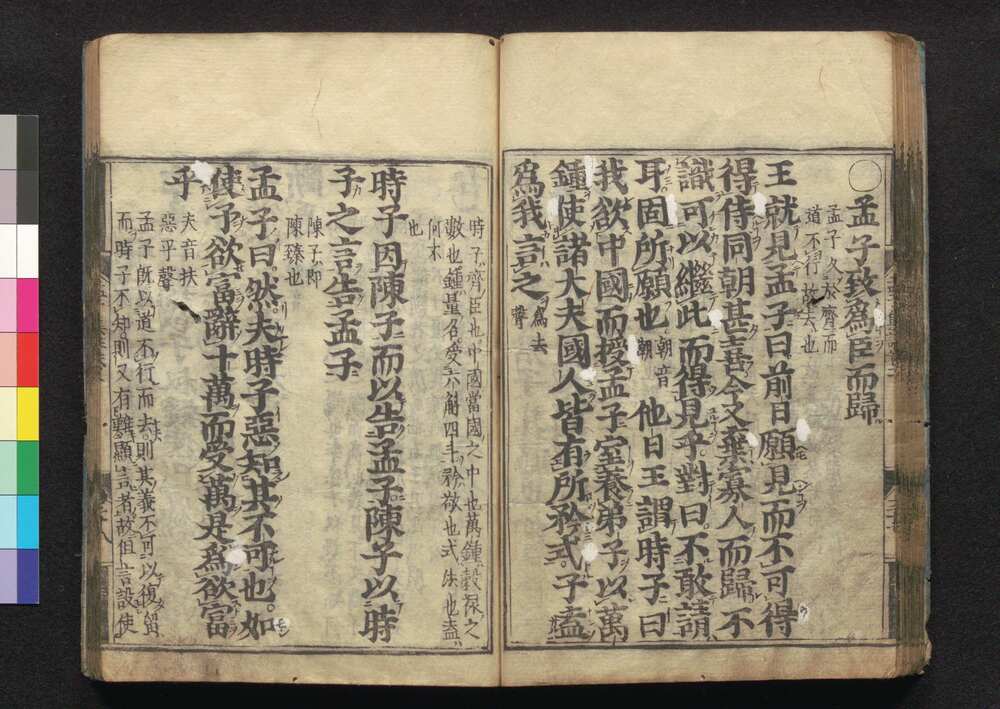 〇孟子致爲臣而歸
孟子久於齊而
道不行故去也
王就見孟子曰前日願見而不可得
得侍同朝甚喜今又棄寡人而歸不
識可以繼此而得見乎對曰不敢請
耳固所願也
朝音
朝
他日王謂時子曰
我欲中國而授孟子室養弟子以萬
鍾使諸大夫國人皆有所矜式子盍
爲我言之
爲去
聲
時子齊臣也中國當國之中也萬鍾穀祿之
數也鍾量名受六斛四斗矜敬也式法也盍
何不
也
時子因陳子而以告孟子陳子以時
子之言告孟子
陳子即
陳臻也
孟子曰然夫時子惡知其不可也如
使予欲富辭十萬而受萬是爲欲富
乎
夫音扶
惡平聲
孟子旣以道不行而去則其義不可以復留
而時子不知則又有難顯言者故但言設使